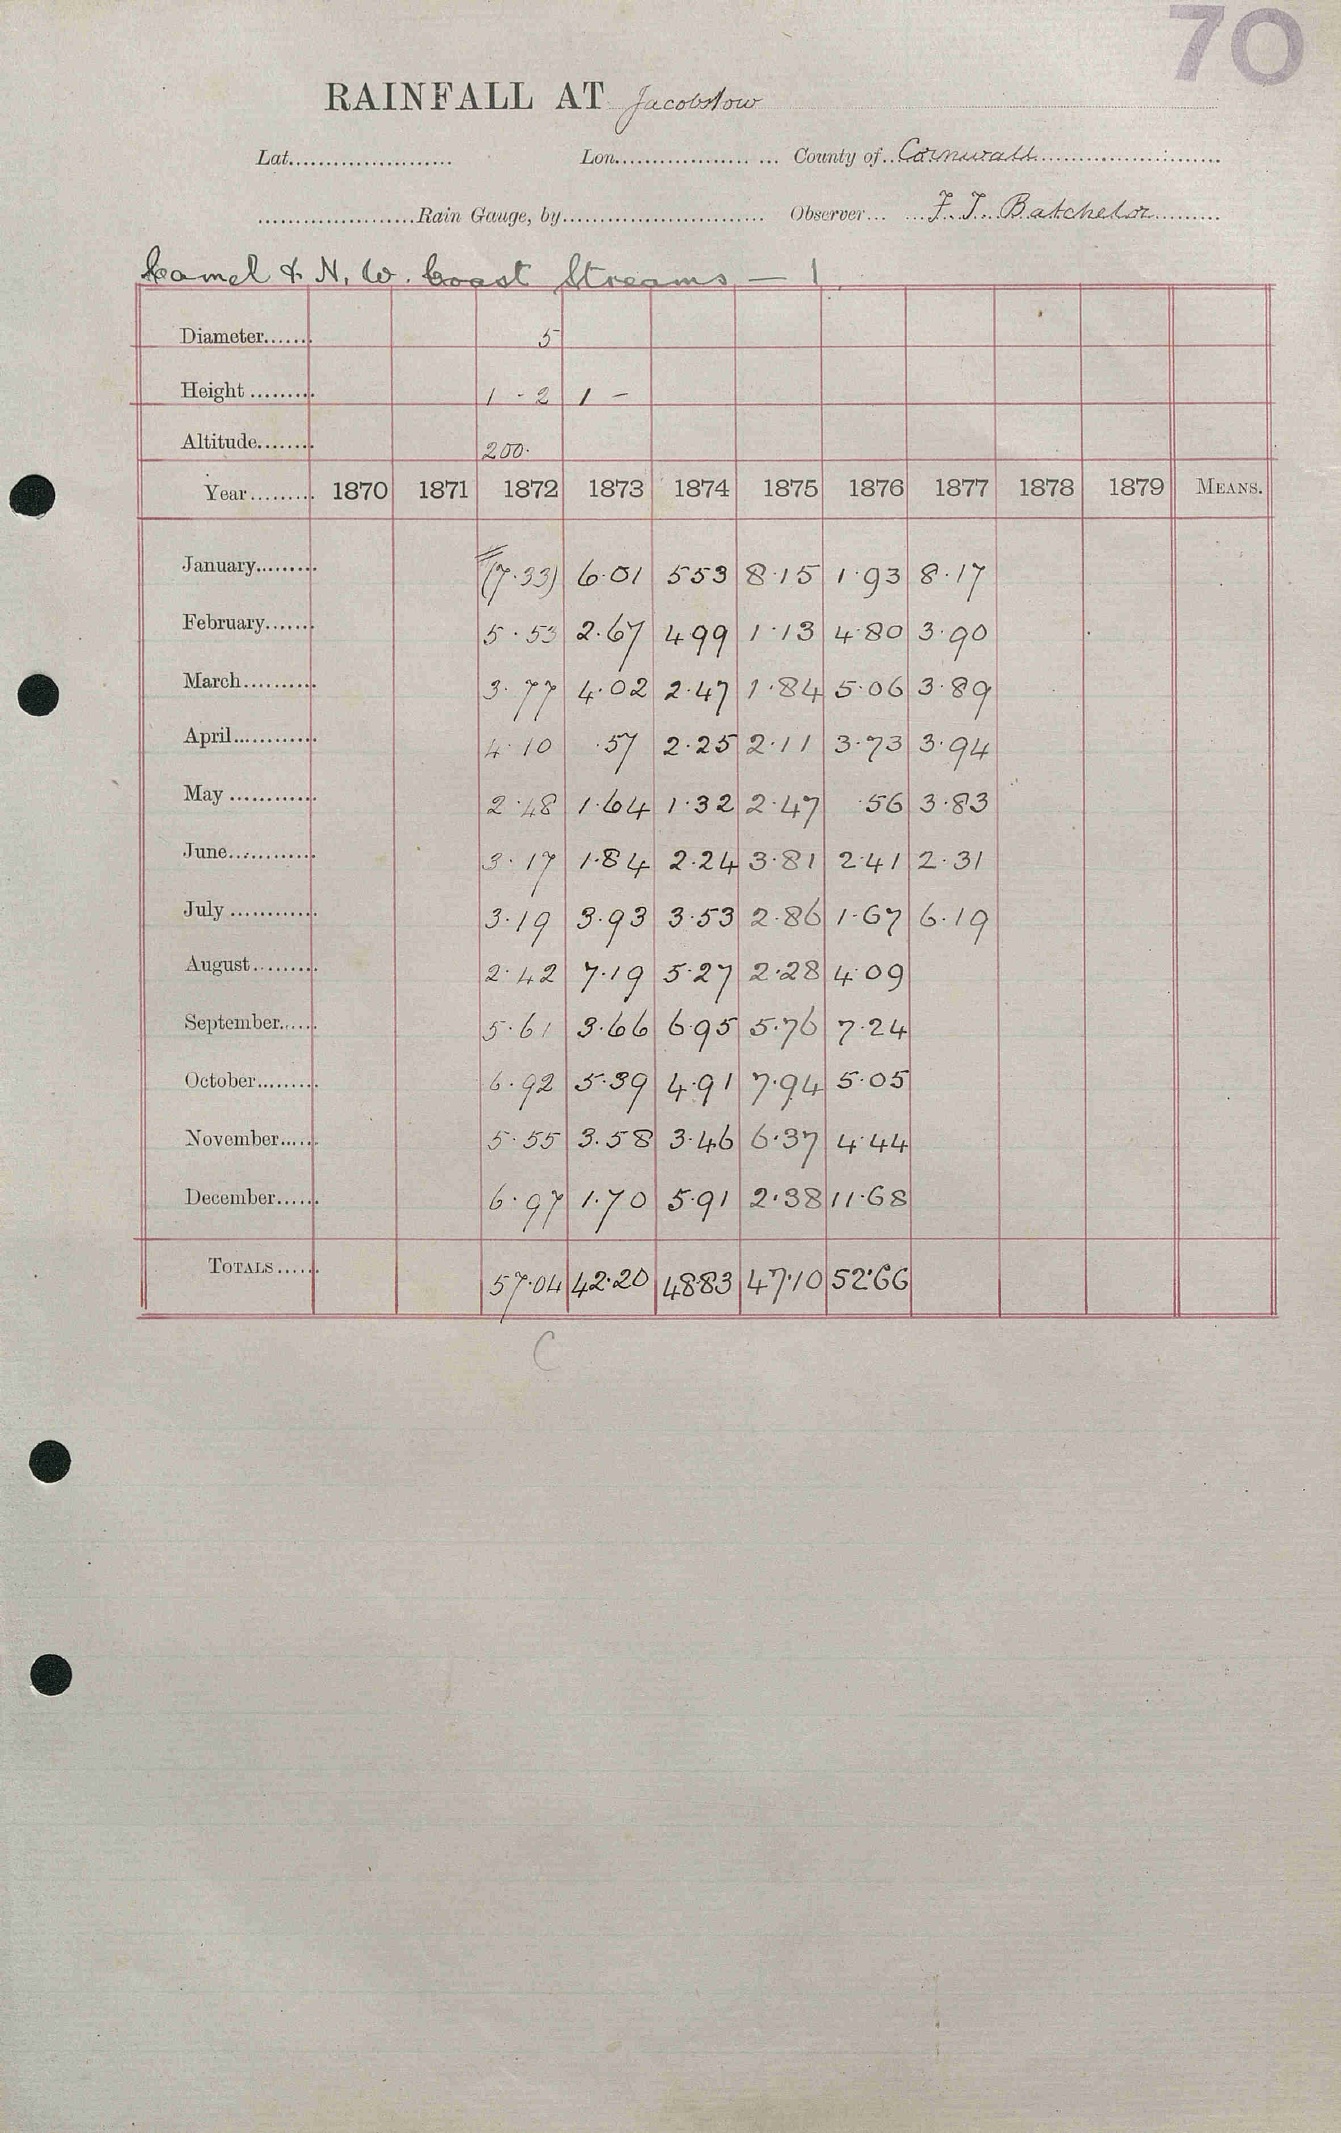 70
RAINFALL AT Jacobstow
Lat. Lon. County of Cornwall
Rain Gauge, by Observer F. J. Batchelor
Camel & N. W. Coast Streams — 1
Diameter 5
Height 1 - 2 1 -
Altitude 200.
Year 1870 1871 1872 1873 1874 1875 1876 1877 1878 1879 MEANS.
January (7.33) 6.01 5 53 8.15 1.93 8.17
February 5.53 2.67 4.99 1.13 4.80 3.90
March 3.77 4.02 2.47 1.84 5.06 3.89
April 4.10 .57 2.25 2.11 3.73 3.94
May 2.48 1.64 1.32 2.47 .56 3.83
June 3.17 1.84 2.24 3.81 2.41 2.31
July 3.19 3.93 3.53 2.86 1.67 6.19
August 2.42 7.19 5.27 2.28 4.09
September 5.61 3.66 6.95 5.76 7.24
October 6.92 5.39 4.91 7.94 5.05
November 5.55 3.58 3.46 6.37 4.44
December 6.97 1.70 5.91 2.38 11.68
TOTALS 57.04 42.20 48.83 47.10 52.66
C